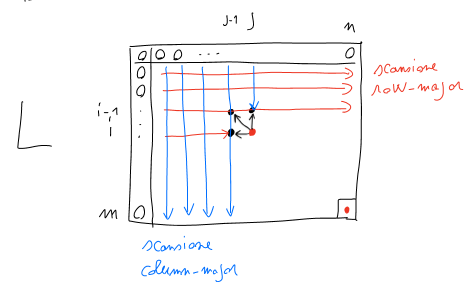 j-1 j n
0 0 0 ... 0
0
0
i-1 :
i :
m 0
L
scansione
row-major
scansione
column-major